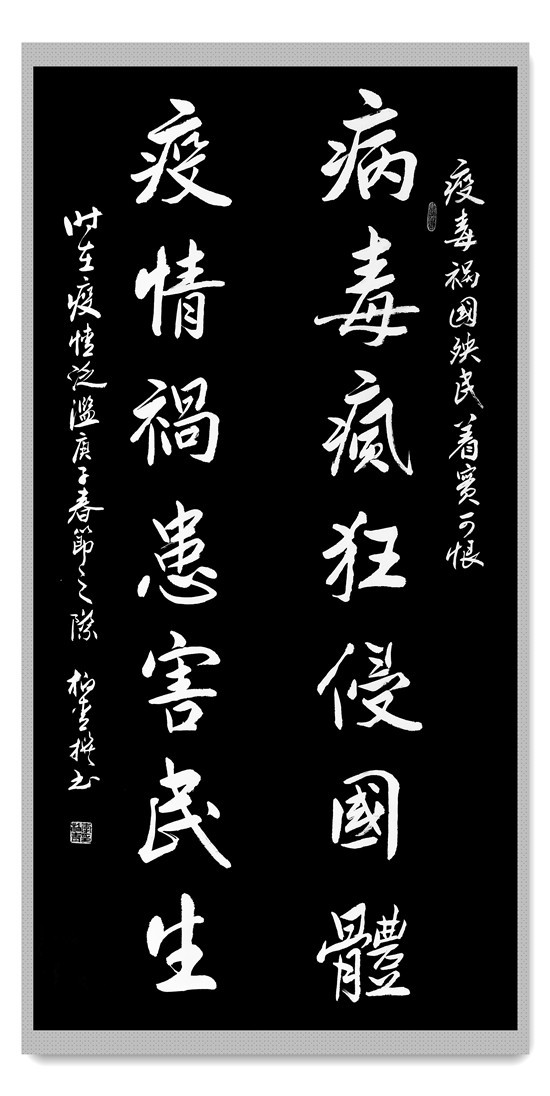 疫毒祸國殃民着實可恨
病毒瘋狂侵國體
疫情禍患害民生
时在疫情泛濫庚子春節之際
撰书